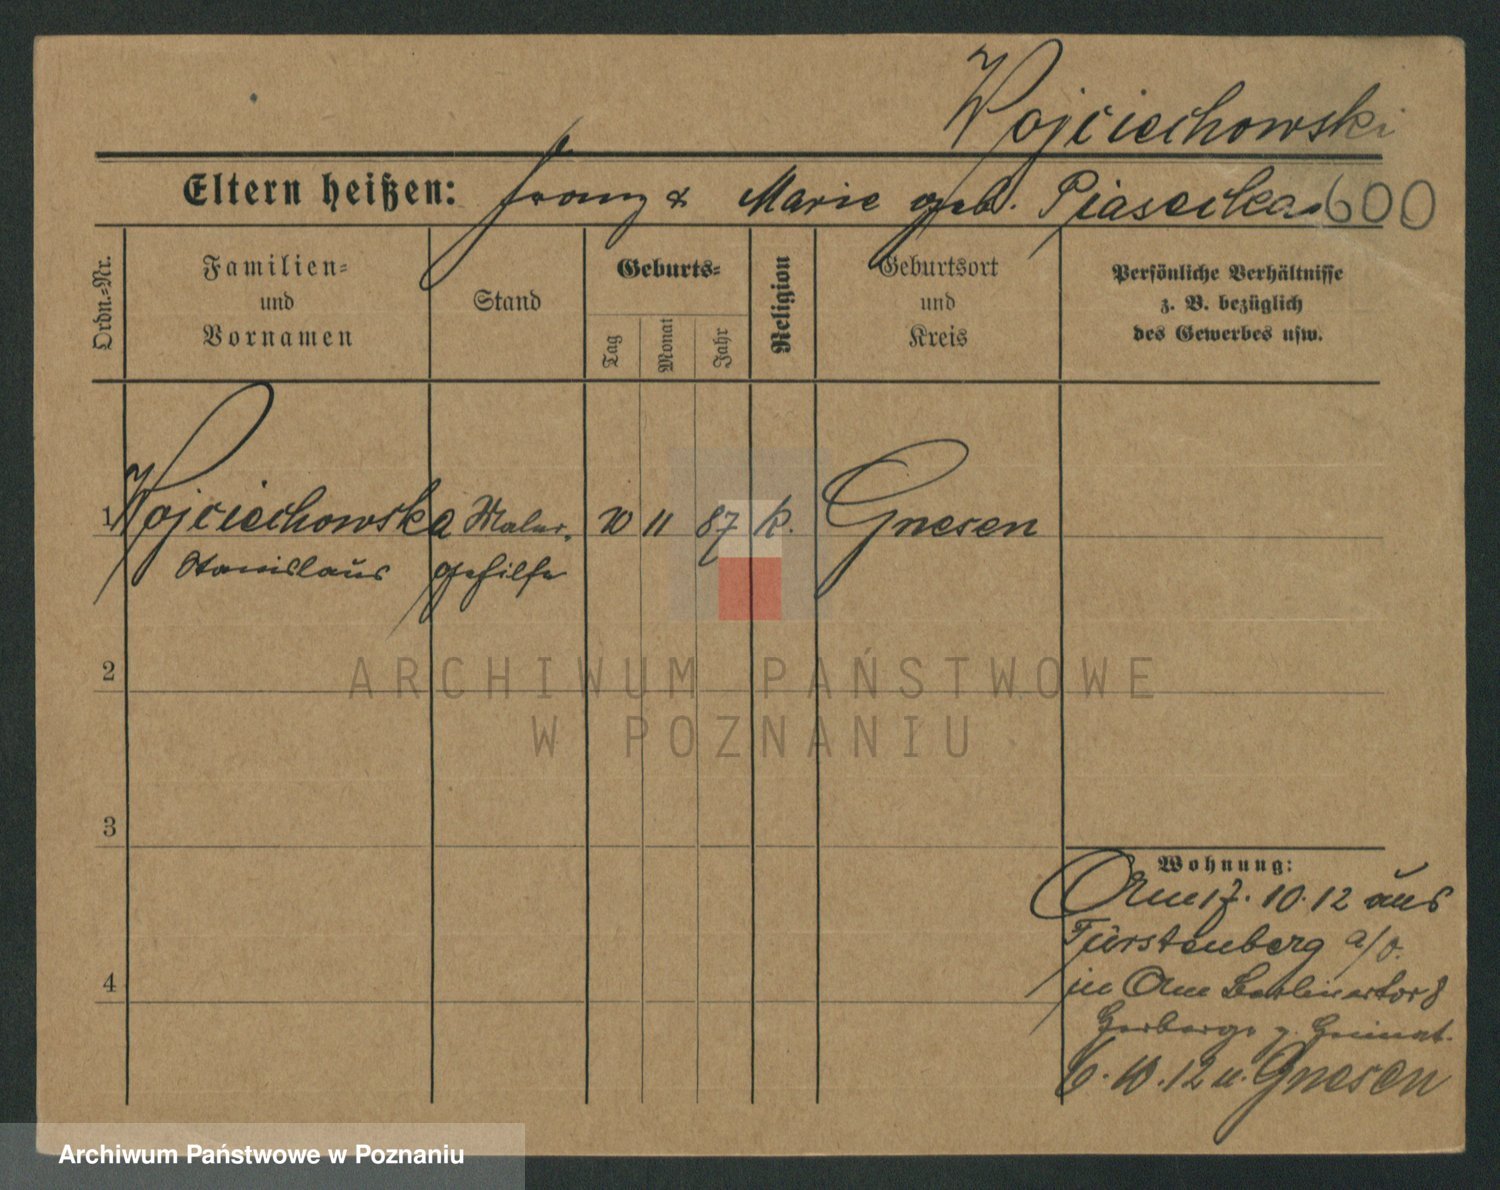 Wojciechowski
Eltern heißen: Franz & Marie geb. Piasecka 600
Ordn.-Nr.
Familien-
und
Vornamen
Stand
Geburts-
Tag
Monat
Jahr
Religion
Geburtsort
und
Kreis
Persönliche Verhältnisse
z. B. bezüglich
des Gewerbes usw.
1 Wojciechowski Maler- 20 11 87 k. Gnesen
Stanislaus gehilfe
2
3
4
Wohnung:
17. 10. 12 aus
Fürstenberg a/O.
in
z. Heimat.
10. 12 n. Gnesen
ARCHIWUM PAŃSTWOWE
W POZNANIU
Archiwum Państwowe w Poznaniu